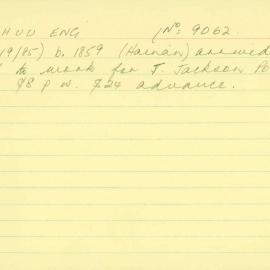 HUU ENG No: 9062.
19/85) b. 1859 (Hainan) arrived
to work for J. Jackson Po
$8 p.w. $24 advance.